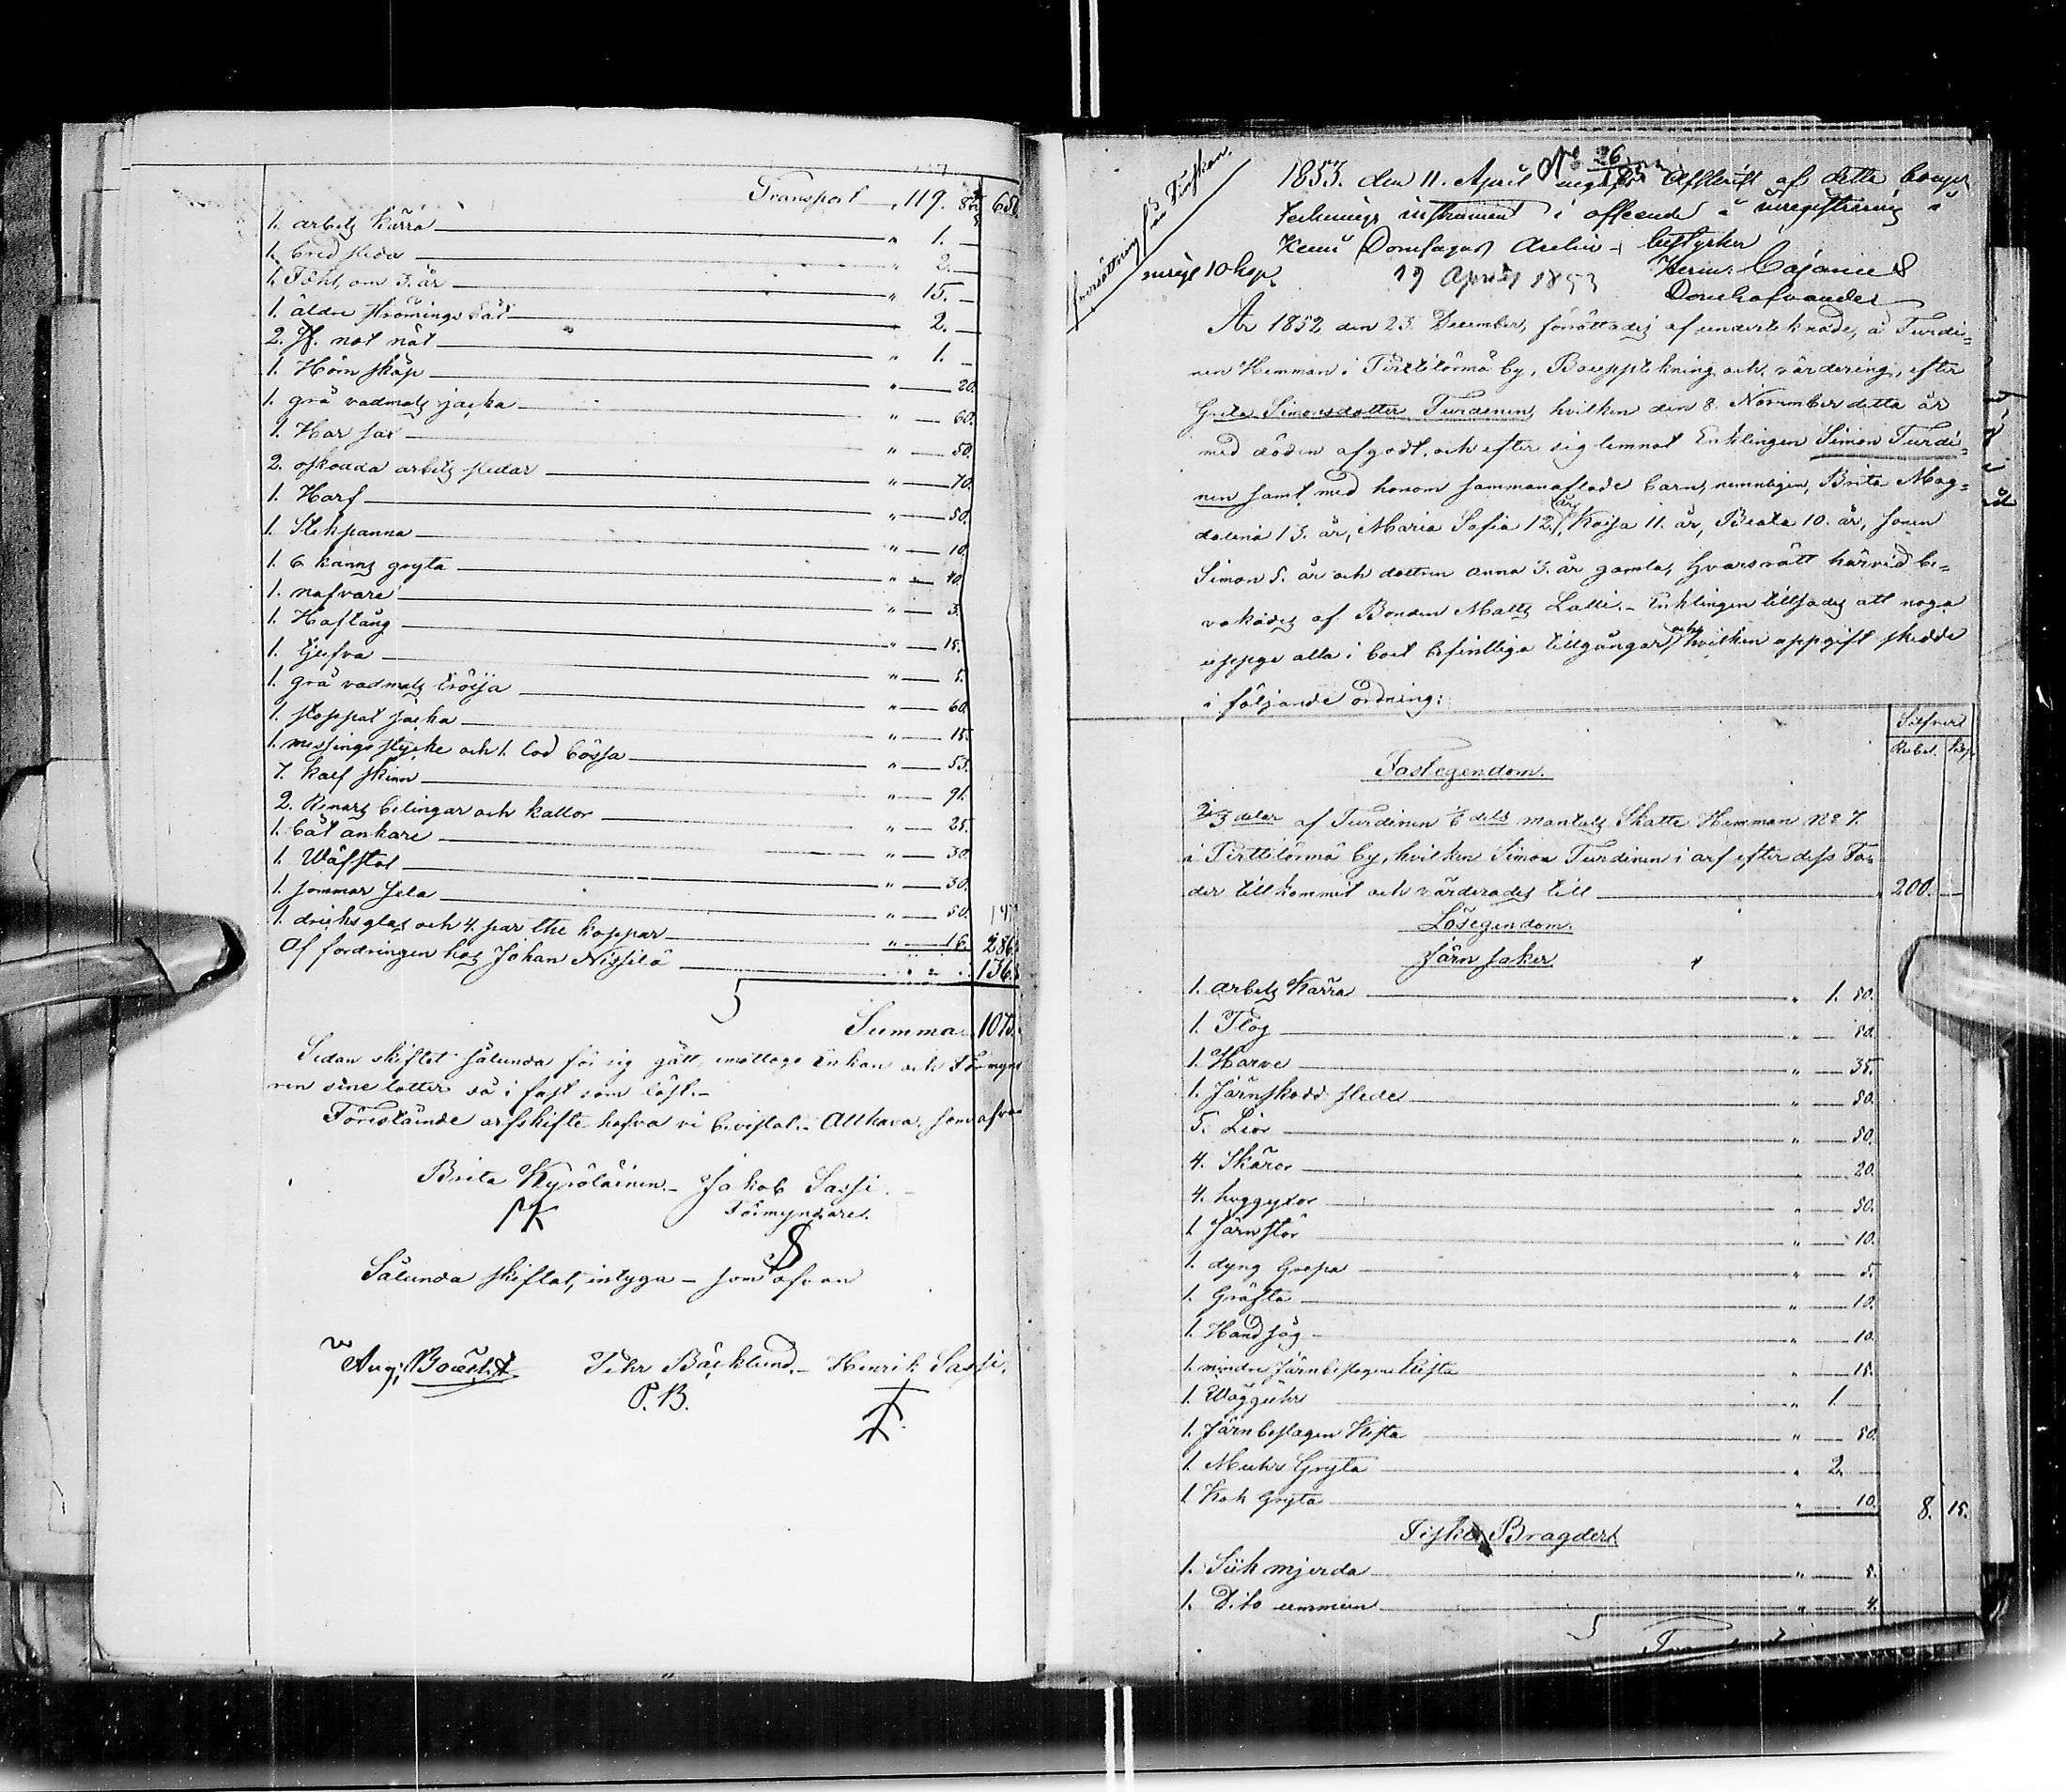 Transport " 119. 650
1. arbets kärra " 1. —
1. bred släda " 2. —
1. Fåhl, om 3. år " 15. —
1. äldre Strömings båt " 2. —
2. St. not nät " 1. —
1. Hörn skåp " — 20.
1. grå vadmals jacka " — 60.
1. Har sax " — 50.
2. oskodda arbets slädar " — 70.
1. Harf " — 50.
1. Stekpanna " — 10.
1. 6 kanns gryta " — 40.
1. nafvare " — 3.
1. Haftång " — 15.
1. tjufva " — 5.
1. grå vadmals tröija " — 60.
1. stoppat jacka " — 15.
1. messings stycke och 1. lod bössa " — 53.
7. kalf skinn " — 91.
2. Renars belingar och kallor " — 25.
1. båt ankare " — 30.
1. Wäfstol " — 30.
1. sommar sela " — 50.
1. dricks glas och 4. par the koppar " — 16. 286
Af fordringen hos Johan Nissilä 136
Summa 1073
Sedan skiftet sålunda för sig gått, emottogo Enkan och Förmyn
ren sine lotter så i fast som löst.
Förestående arfskifte hafva vi bevistat. Attkava, som ofvan
Brita Kyröläinen. Jakob Sassi.
Förmyndare.
S
Sålunda skiftat, intyga – som ofvan
Aug: Pehr Bäcklund. Henrik Sassi.
P.B.
No 26
1853
1853. den 11. April ingafs Afskrift af detta bouppteckningsinstrument i afseende å inregistrering i
Kemi Domsagas Archiv bestyrker
Herm: Cajanus
inregt 10 kop. 19 April 1853 Domhafvande
År 1852 den 23. December, förrättades af undertecknade, å Turdi=
nen Hemman i Pirttilörmä by, Bouppteckning och värdering, efter
Greta Simonsdotter Turdinen, hvilken den 8. November detta år
med döden afgådt, och efter sig lemnat Enklingen Simon Turdi=
nen samt med honom sammanaflade barn, nemnligen, Brita Mag=
dalena 13. år, Maria Sofia 12. år, Kaisa 11. år, Beata 10. år, sonen
Simon 5. år och dottren Anna 3. år gamla, hvars rätt härvid be=
vakades af Bonden Matts Lalli. – Enklingen tillsades att noga
uppge alla i boet befintliga tillgångar, hvilken uppgift skedde
i följande ordning:
Silfver
Rubel. Kop.
Fastegendom.
2/3 delar af Turdinen 1/6 dels mantals Skatte Hemman No 7.
i Pirttilörmä by, hvilken Simon Turdinen i arf efter dess Fa=
der tillkommit och värderades till 200. —
Lösegendom.
Järn saker
1. arbets Kärra " 1. 50.
1. Plog " — 50.
1. Harve " — 35.
1. Järnskodd släde " — 50.
5. Lior " — 50.
4. Skäror " — 20.
4. huggyxor " — 50.
1. Järnstör " — 10.
1. dyng Grepa " — 5.
1. Gräfta " — 10.
1. Handsåg " — 10.
1. mindre Järnbeslagen Kista " — 15.
1. Wäggûhr " 1. —
1. Järnbeslagen Kista " — 50.
1. Muhr Gryta " 2. —
1. Kok Gryta " — 10. 8. 15.
Fiske Bragder
1. Siik mjerda " — 5.
1. Dito " — 4.